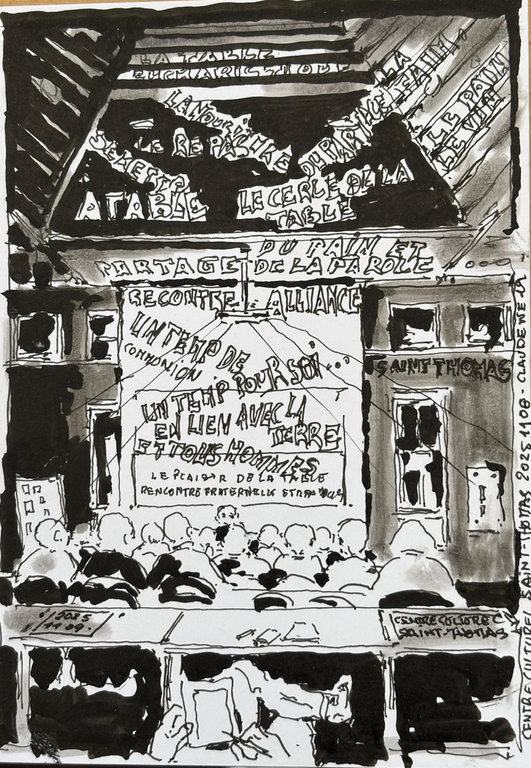 LA TABLE
EUCHARISTIQUE
LA NOURRITURE
LE REPAS
A TABLE
LA
FAIM
LE PAIN
LE VIN
LE CERLE DE LA
TABLE
PARTAGE DU PAIN ET
DE LA PAROLE
RECONTRE ALLIANCE
UN TEMP DE
COMMUNION
UN TEMP POUR SOI...
EN LIEN AVEC LA
TERRE
ET TOUS HOMMES
LE PLAISIR DE LA TABLE
RENCONTRE FRATERNELLE
SAINT THOMAS
CENTRE CULTUREL
SAINT-THOMAS
CENTRE CULTUREL SAINT-THOMAS 20251108-CLAUDE MEYER